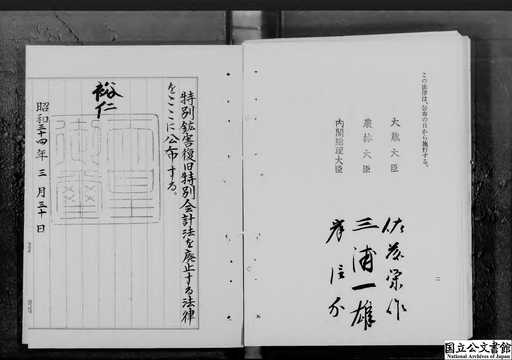 この法律は、公布の日から施行する。
大蔵大臣 佐藤栄作
農林大臣 三浦一雄
内閣総理大臣 岸信介
二
特別鉱害復旧特別会計法を廃止する法律
をここに公布する。
裕仁
天皇御璽
昭和三十四年三月三十日
国立公文書館
National Archives of Japan